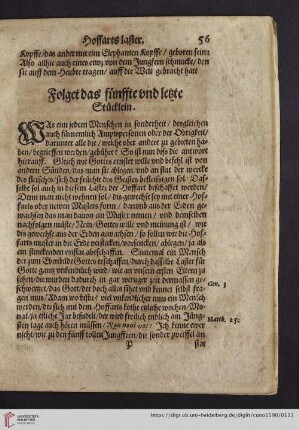 Hoffarts laster. 56
Kopffe / das ander mit eim Elephanten Kopffe / geboren sein:
Also allhie auch eines etwz von dem Jungfern schmucke / den
sie auff dem Heubte tragen / auff die Welt gebracht hatt
Folget das fünffte vnd letzte
Stücklein.
WAs ein jedem Menschen in sonderheit / desgleichen
auch fürnemlich Amptspersonen oder der Obrigkeit /
darunter alle die / welche ober andere zu gebieten ha-
ben / begrieffen werden / gebühre? So ist nun dis die antwort
hierauff. Gleich wie Gottes ernster wille vnd befehl ist von
andern Sünden / das man sie ablegen / vnd an stat der wercke
des fleisches / sich der früchte des Geistes befleissigen sol: Das-
selbe sol auch in diesem Laster der Hoffart beschafft werden /
Denn man nicht wehnen sol / als die gewechse sey mit einer Hof-
farts oder newem Musters form / darumb aus der Erden ge-
wachsen das man dauon ein Muster nemen / vnd demselben
nachfolgen müste / Nein / Gottes wille vnd meinung ist / wie
dis gewechse aus der Erden gewachsen / so sollen wir die Hof-
farts muster in die Erde verstecken / versencken / ablegen / ja als
ein stinckenden vnflat abschaffen. Sintemal ein Mensch
der zum Ebenbilde Gottes erschaffen / durch dasselbe Laster für
Gotte gantz vnkendlich wird / wie an vnsern ersten Eltern zu
sehen / die wurden dadurch in gar weniger zeit dermassen ge-
schwertzet / das Gott / der doch alles sihet vnd kennet selbst frag
gen mus / Adam wo bistu / wie viel vnkendlicher mus ein Mensch
werden / der sich mit dem Hoffarts kothe etzliche wochen / Mo-
nat / ja etliche Jar besudelt / der wird freilich endlich am Jüng-
sten tage auch hören müssen / Non noui vos: Ich kenne ewer
nicht / wie zu den fünff tollen Jungfrawen / die sonder zweiffel an
Gen. 3
Matth. 25.
P
https://digi.ub.uni-heidelberg.de/diglit/cuno1590/0113